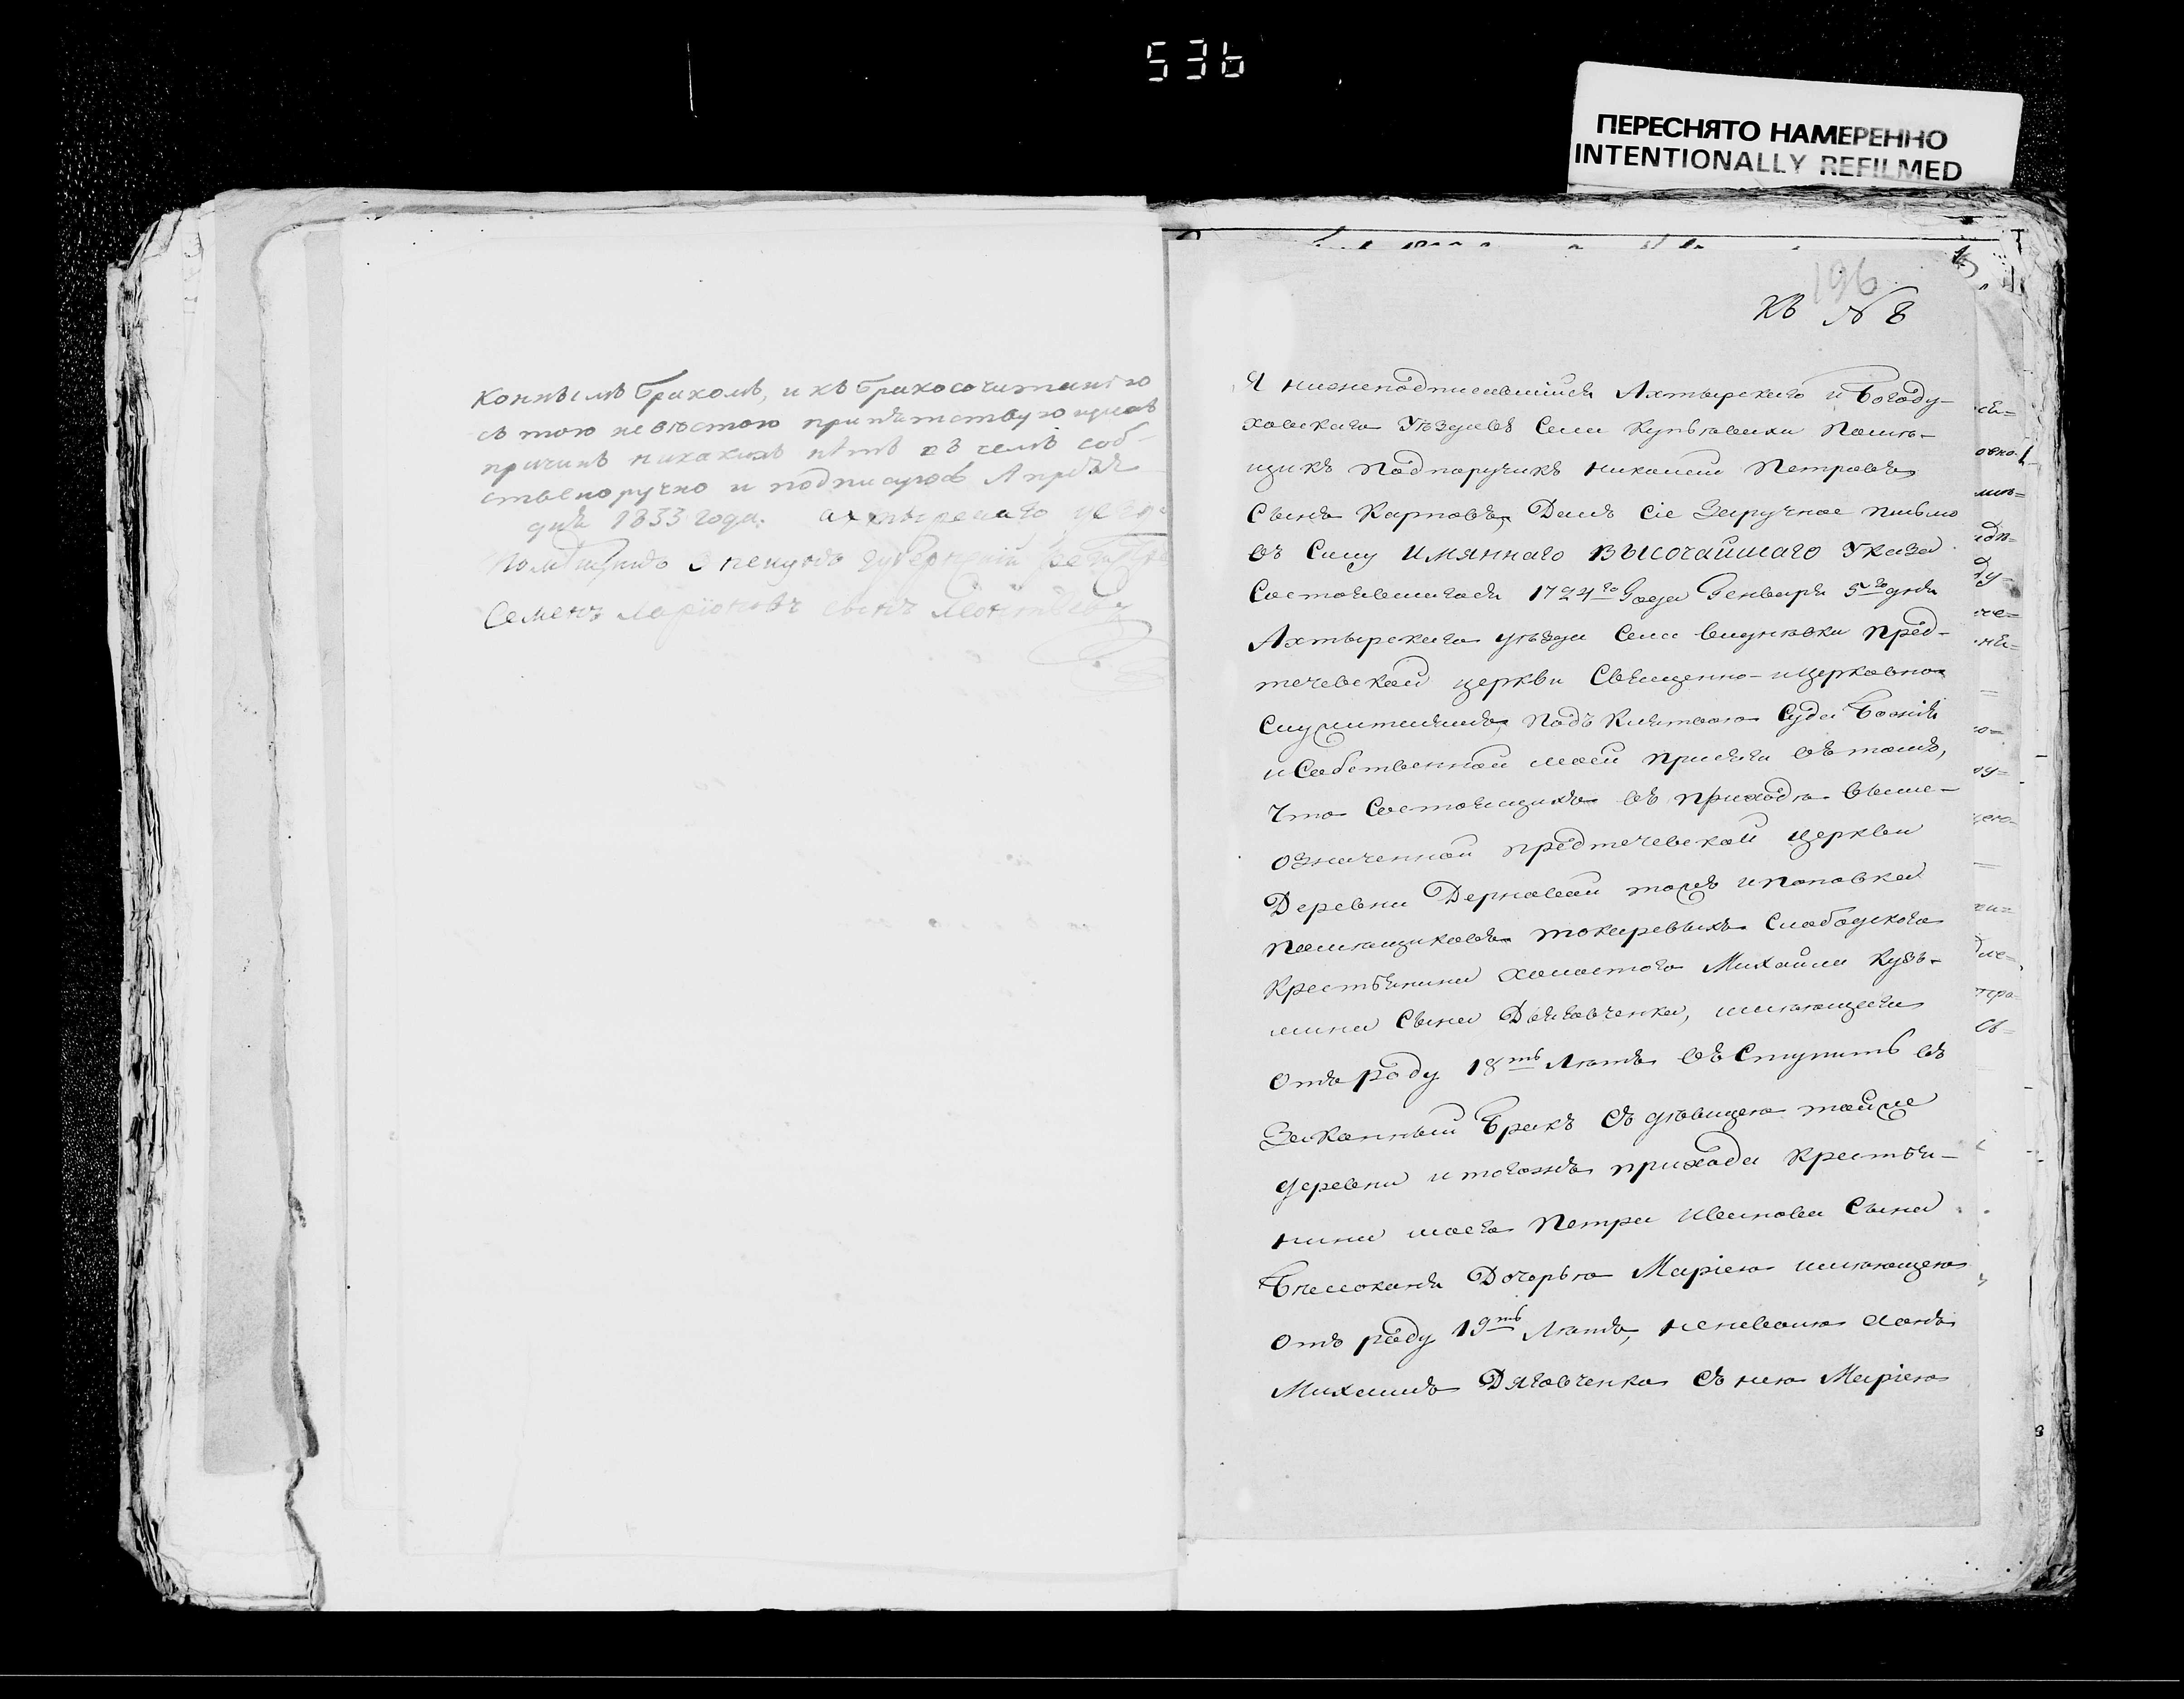 536
ПЕРЕСНЯТО НАМЕРЕННО
INTENTIONALLY REFILMED
коннымъ бракомъ, и къ бракосочитанію
съ тою невѣстою препятствующихъ
причинъ никакихъ нѣтъ въ чемъ соб-
ственоручно и подписуюсь Апреля
дня 1833 года. ахтырскаго
Семенъ Ларіоновъ сынъ
196
къ № 8
Я нижеподписавшійся Ахтырскаго и Богоду-
ховскаго Уѣздовъ Села Купьевахи помѣ-
щикъ Подпоручикъ Николай Петровъ
Сынъ Карповъ, Далъ сіе Заручное письмо
въ Силу Имяннаго ВЫСОЧАЙШАГО Указа
Состоявшагося 1724го Года Генваря 5го дня
Ахтырскаго уѣзда Села пред-
течевской церкви Священно-ицерковно
Служителямъ, Подъ Клятвою Суда Божія
и Собственной моей присяги въ томъ,
Что Состоящихъ въ приходѣ выше-
означенной предтечевской церкви
Деревни Дерновой тожъ ипоповка
помѣщиковъ токаревыхъ Слободскаго
Крестьянина холостого Михайла Кузь-
мина Сына Дяговченка, имѣющаго
Отъ роду 18ть Лѣтъ въСтупить въ
Законный Бракъ Съ дѣвицею тойже
деревни и тогожъ прихода Крестья-
нина моего Петра Иванова Сына
Дочерью Маріею имѣющею
Отъ роду 19ть Лѣтъ,
Михаилъ Дяговченко Съ нею Маріею